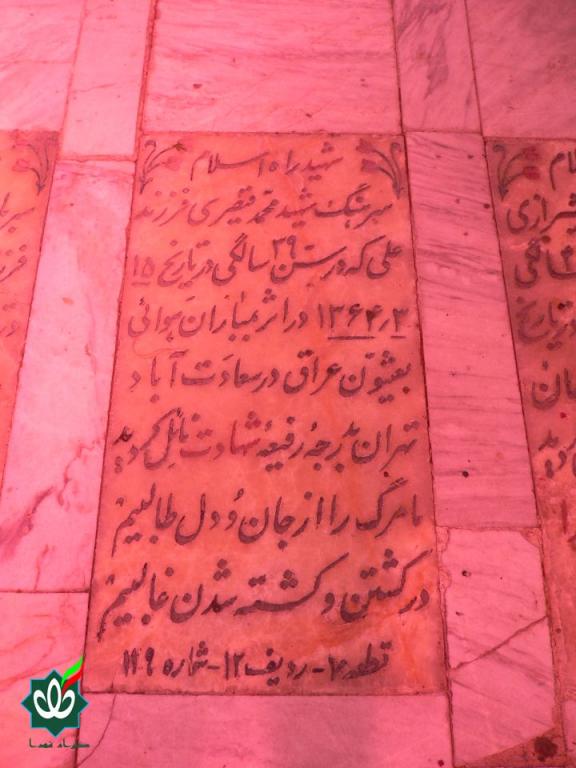 شهید راه اسلام
سرهنگ شهید محمد فقیری فرزند
علی که در سن ۳۹ سالگی در تاریخ ۱۵
۱۳۶۴٫۳ در اثر بمباران هوائی
بعثیون عراق در سعادت آباد
تهران بدرجه رفیعه شهادت نائل گردید
ما مرگ را از جان و دل طالبیم
در کشتن و کشته شدن غالبیم
قطعه ۲۰ - ردیف ۱۲ - شماره ۱۱۹
لام
شیرازی
سالگی
تاریخ